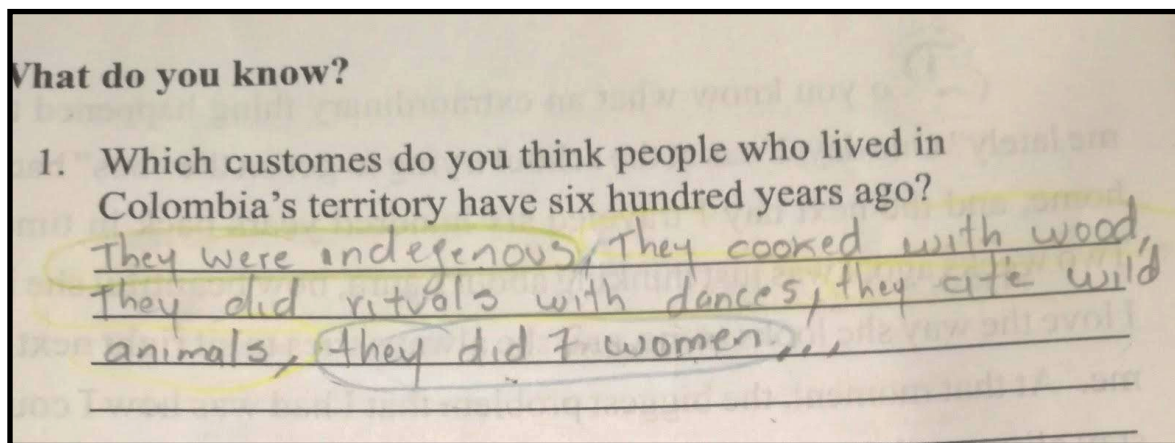 What do you know?
1. Which customes do you think people who lived in
Colombia's territory have six hundred years ago?
They were indegenous, They cooked with wood,
They did rituals with dances, they wild
animals, they did women,,,